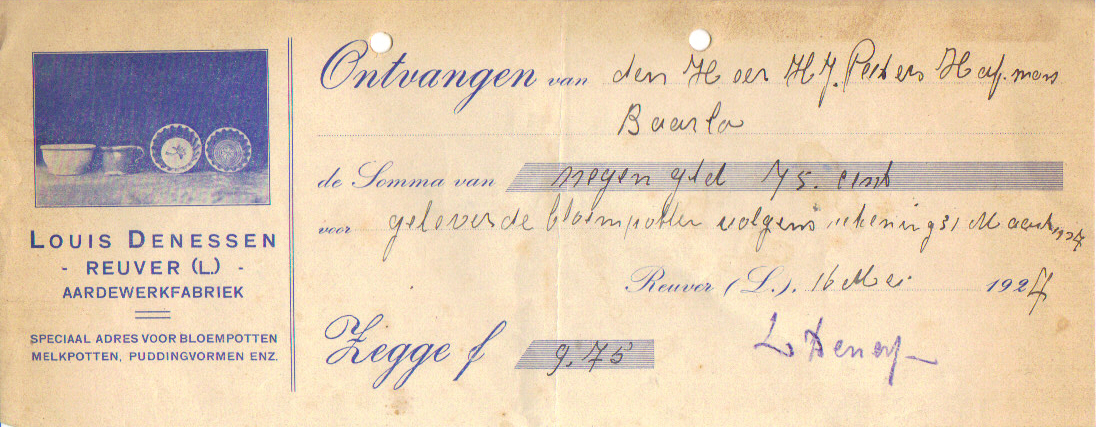 LOUIS DENESSEN
- REUVER (L.) -
AARDEWERKFABRIEK
SPECIAAL ADRES VOOR BLOEMPOTTEN
MELKPOTTEN, PUDDINGVORMEN ENZ.
Ontvangen van den Heer H.J. Peeters
Baarlo
de Somma van negen gld 75. cent
voor geleverde bloempotten volgens rekening 31 Maart 1927
Reuver (L.), 16 Mei 1927
Zegge f 9.75
L Denes